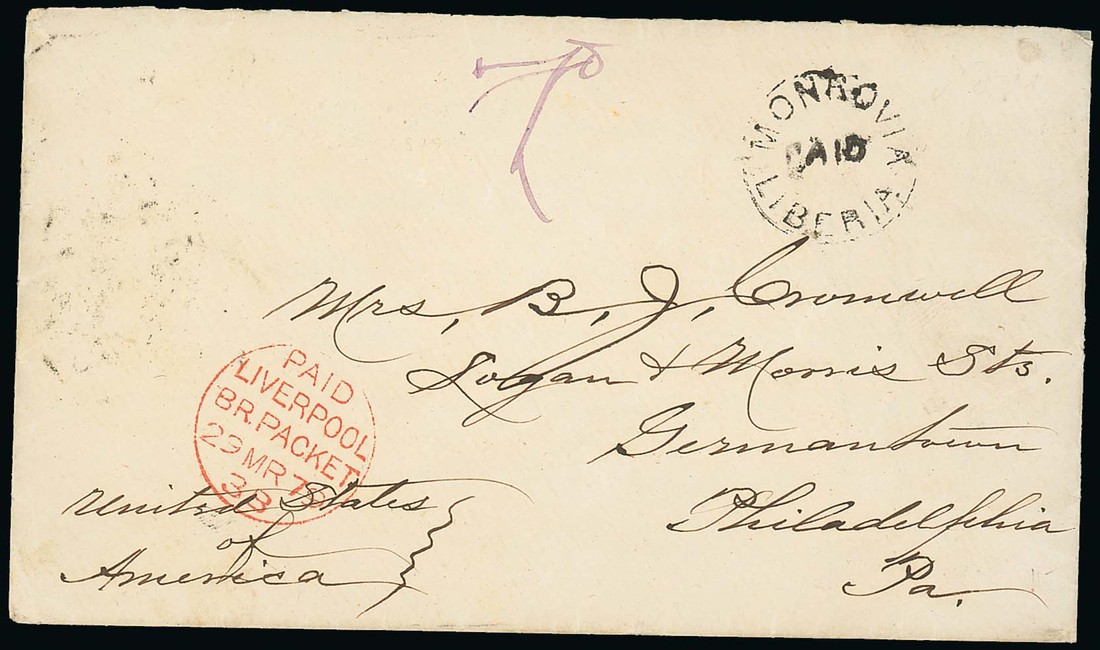 MONROVIA
PAID
LIBERIA
Mrs, B, J, Cromwell
Logan & Morris Sts.
Germantown
Philadelphia
Pa.
PAID
LIVERPOOL
BR.PACKET
29 MR
3B
United States
of
America